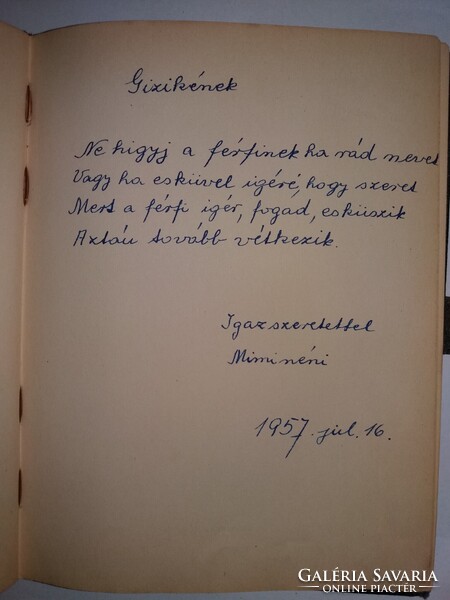 Gizikének
Ne higyj a férfinek ha rád nevet
Vagy ha esküvel igéré, hogy szeret
Mert a férfi igér, fogad, esküszik
Aztán tovább vétkezik.
Igaz szeretettel
Mimi néni
1957. júl. 16.
GALÉRIA SAVARIA
ONLINE PIACTÉR